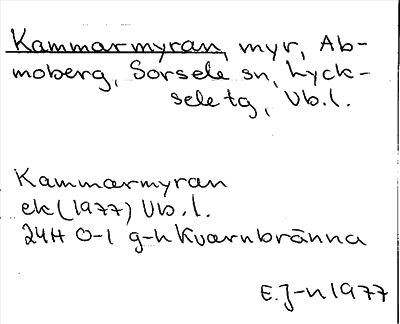 Kammarmyran, myr, Ab-
moberg, Sorsele sn, Lyck-
sele tg, Vb.l.
Kammarmyran
ek (1977) Vb.l.
24H 0-1 g-h Kvarnbränna
E.J-n 1977